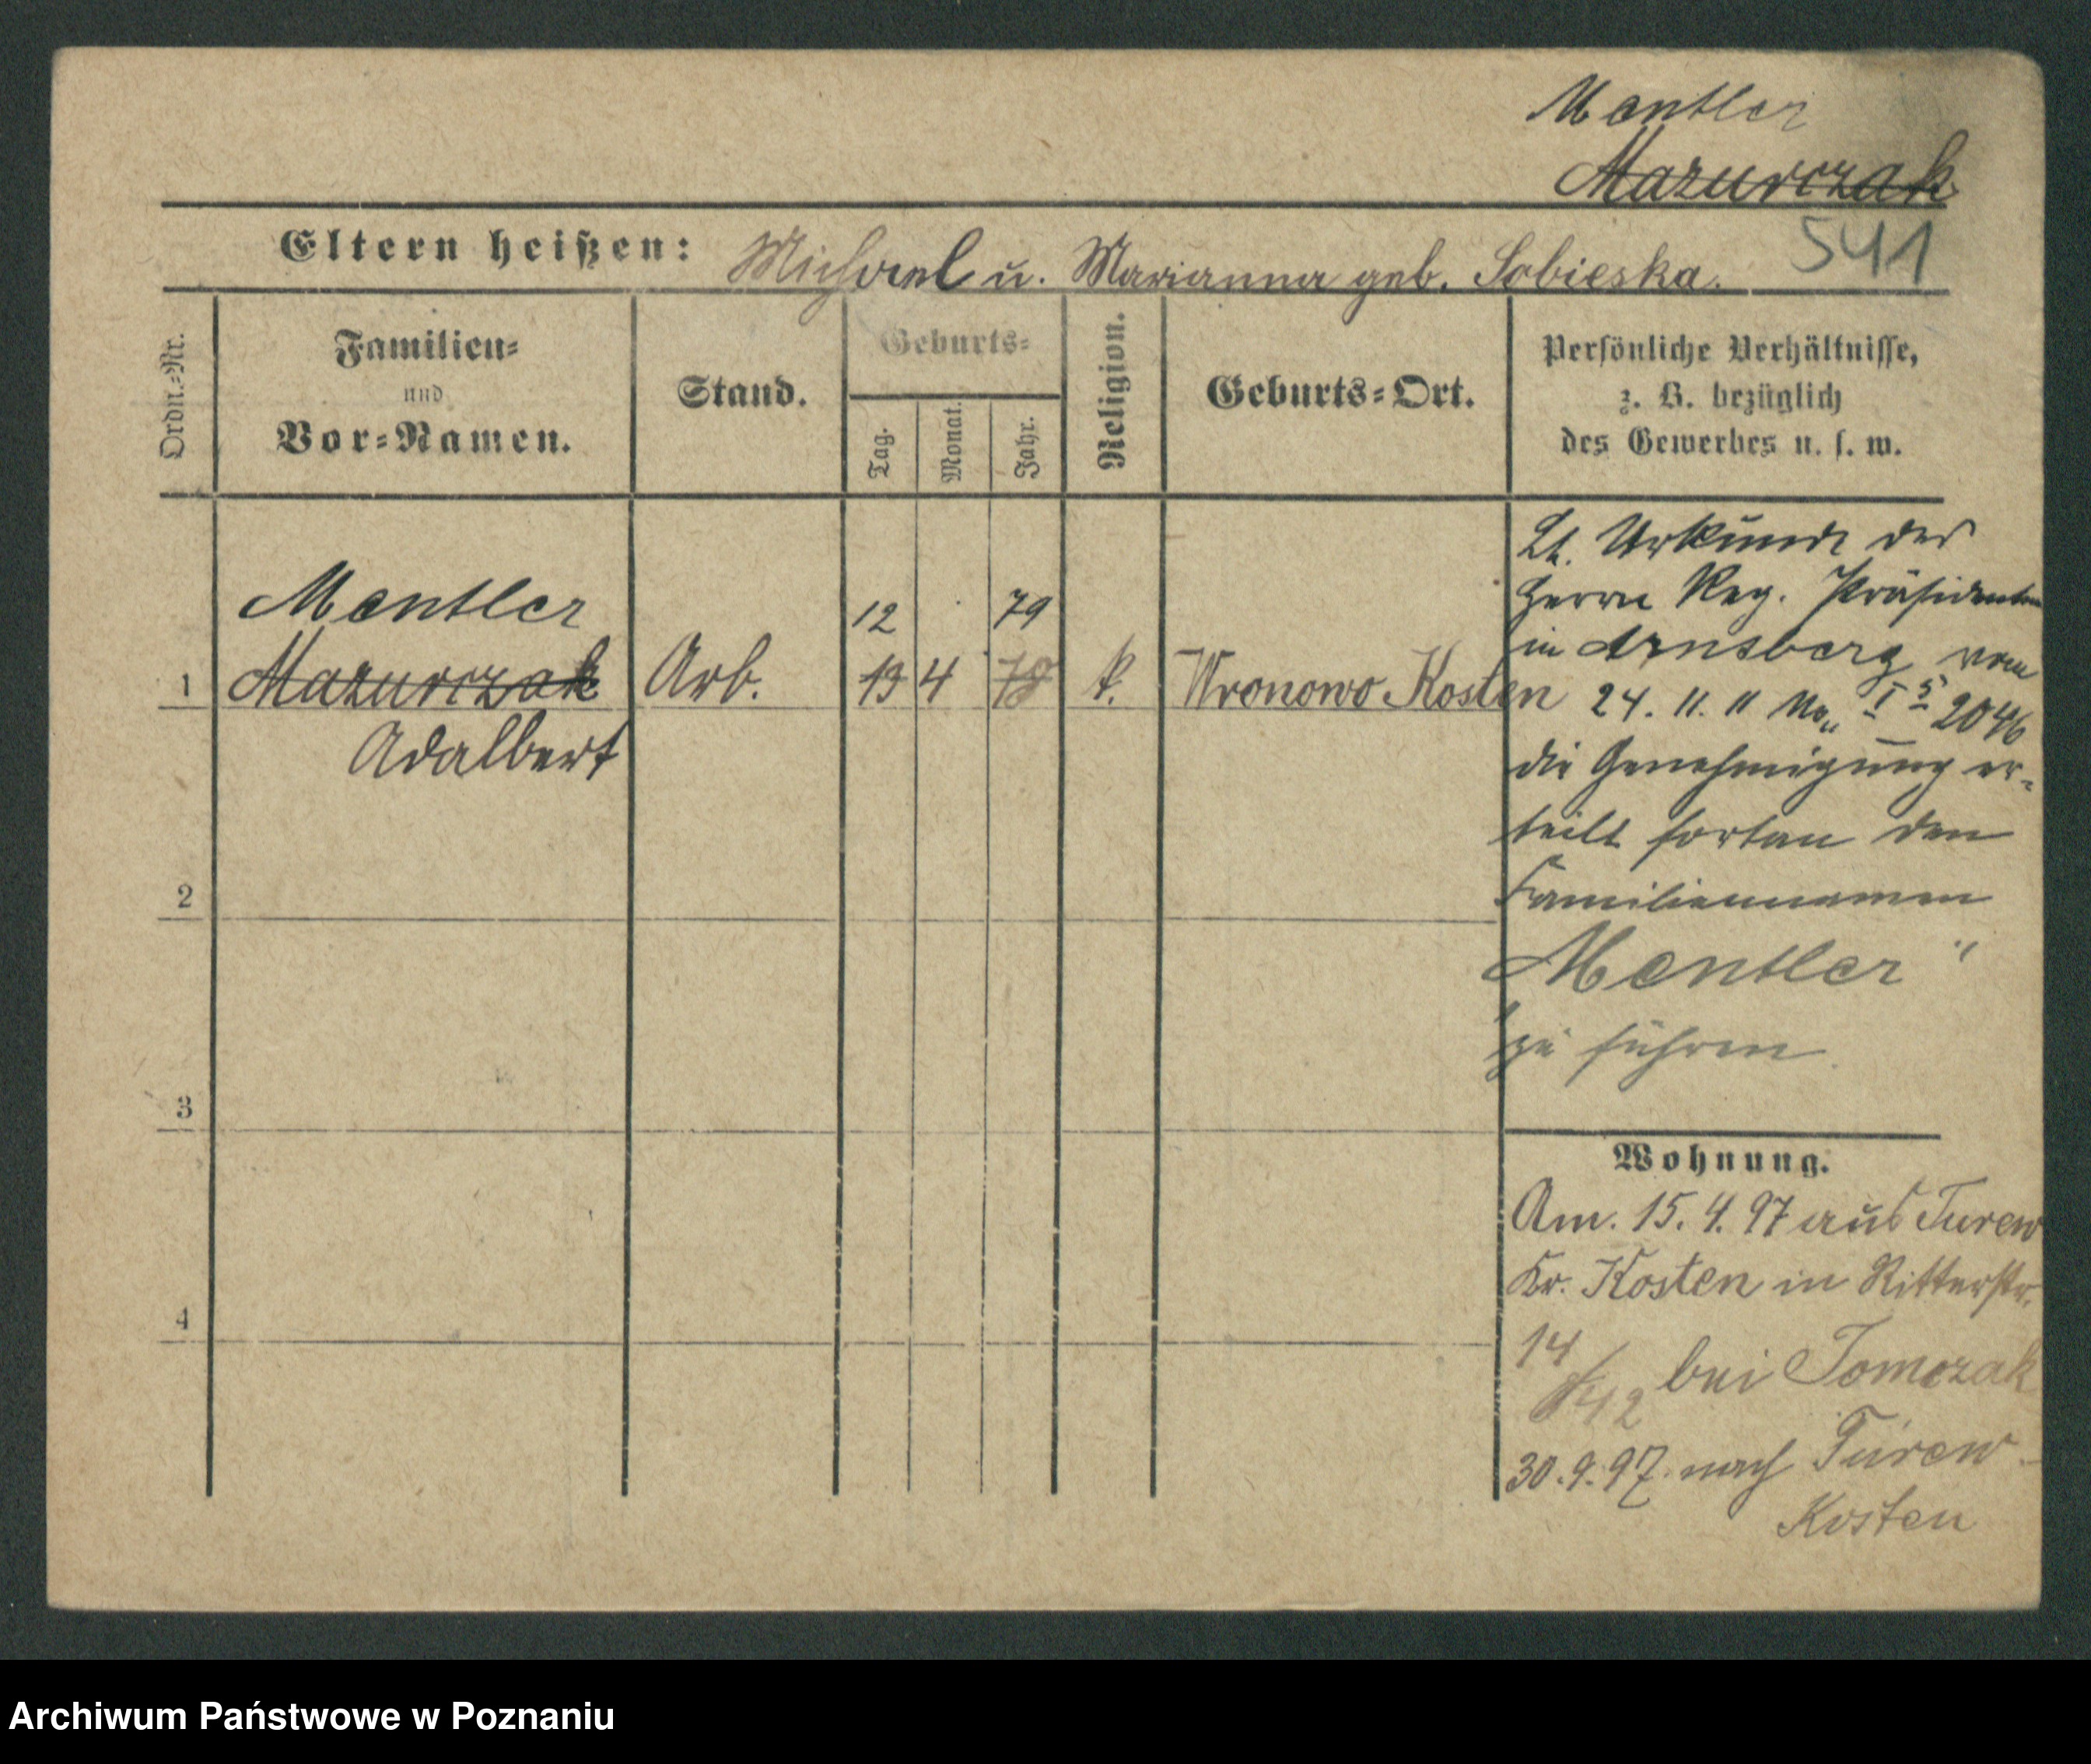 Mentler
Mazurczak
541
Eltern heißen: Michael u. Marianna geb. Sobieska.
Ordn.-Nr.
Familien-
und
Vor-Namen.
Stand.
Geburts-
Tag.
Monat.
Jahr.
Religion.
Geburts-Ort.
Persönliche Verhältnisse,
z. B. bezüglich
des Gewerbes u. s. w.
Mentler 12 79
1 Mazurczak Arb. 13 4 78 k. Wronowo Kosten
Adalbert
2
3
4
Lt. Urkunde des
Herrn Reg. Präsidenten
in Arnsberg vom
24. 11. 11 No. I 5 2046
die Genehmigung er-
teilt fortan den
Familiennamen
„Mentler“
zu führen
Wohnung.
Am. 15. 4. 97 aus Turew
Kr. Kosten in Ritterstr.
14 bei Tomczak
30. 9. 97. nach Turew -
Kosten
Archiwum Państwowe w Poznaniu